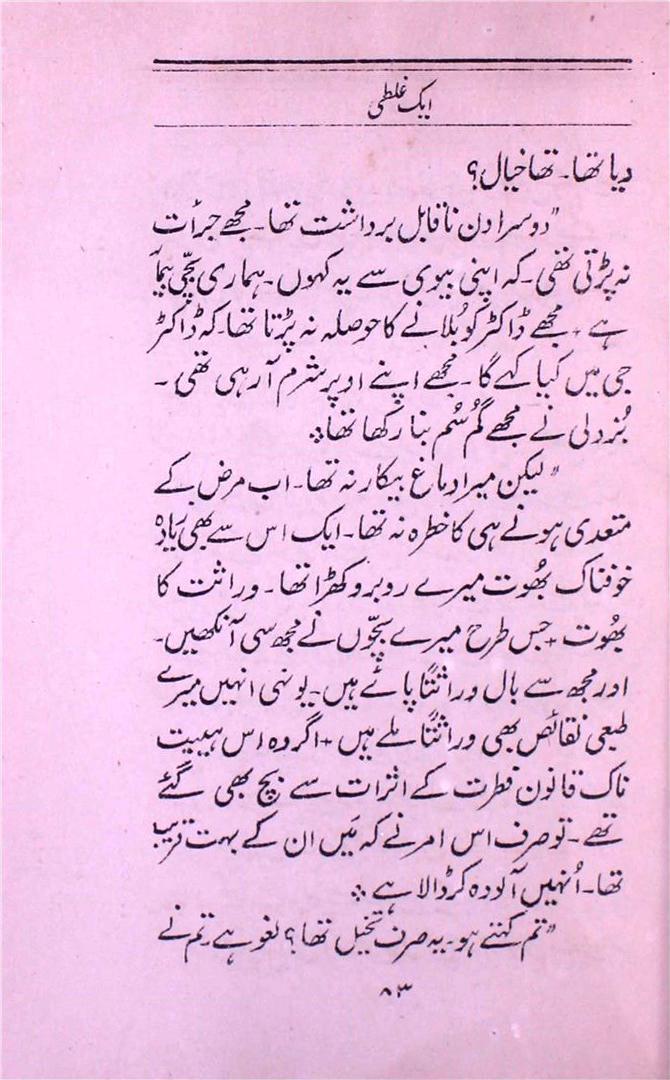 ایک غلطی
دیا تھا۔ تھا خیال؟
"دوسرا دن ناقابل برداشت تھا۔ مجھے جرأت
نہ پڑتی تھی۔ کہ اپنی بیوی سے یہ کہوں۔ ہماری بچّی بیمار
ہے + مجھے ڈاکٹر کو بُلانے کا حوصلہ نہ پڑتا تھا۔ کہ ڈاکٹر
جی میں کیا کہے گا۔ مجھے اپنے اوپر شرم آرہی تھی ۔
بُزدلی نے مجھے گُم سُم بنا رکھا تھا ⁘
"لیکن میرا دماغ بیکار نہ تھا۔ اب مرض کے
متعدی ہونے ہی کا خطرہ نہ تھا۔ ایک اس سے بھی زیادہ
خوفناک بھُوت میرے روبرو کھڑا تھا۔ وراثت کا
بھُوت + جس طرح میرے بچّوں نے مجھ سی آنکھیں۔
اور مجھ سے بال وراثتًا پائے ہیں۔ یونہی انہیں میرے
طبعی نقائص بھی وراثتًا ملے ہیں + اگر وہ اس ہیبت
ناک قانون فطرت کے اثرات سے بچ بھی گئے
تھے۔ تو صرف اس امر نے کہ مَیں ان کے بہت قریب
تھا۔ اُنہیں آلودہ کر ڈالا ہے ⁘
"تم کہتے ہو۔ یہ صرف تخیل تھا؟ لغو ہے۔ تم نے
۸۳